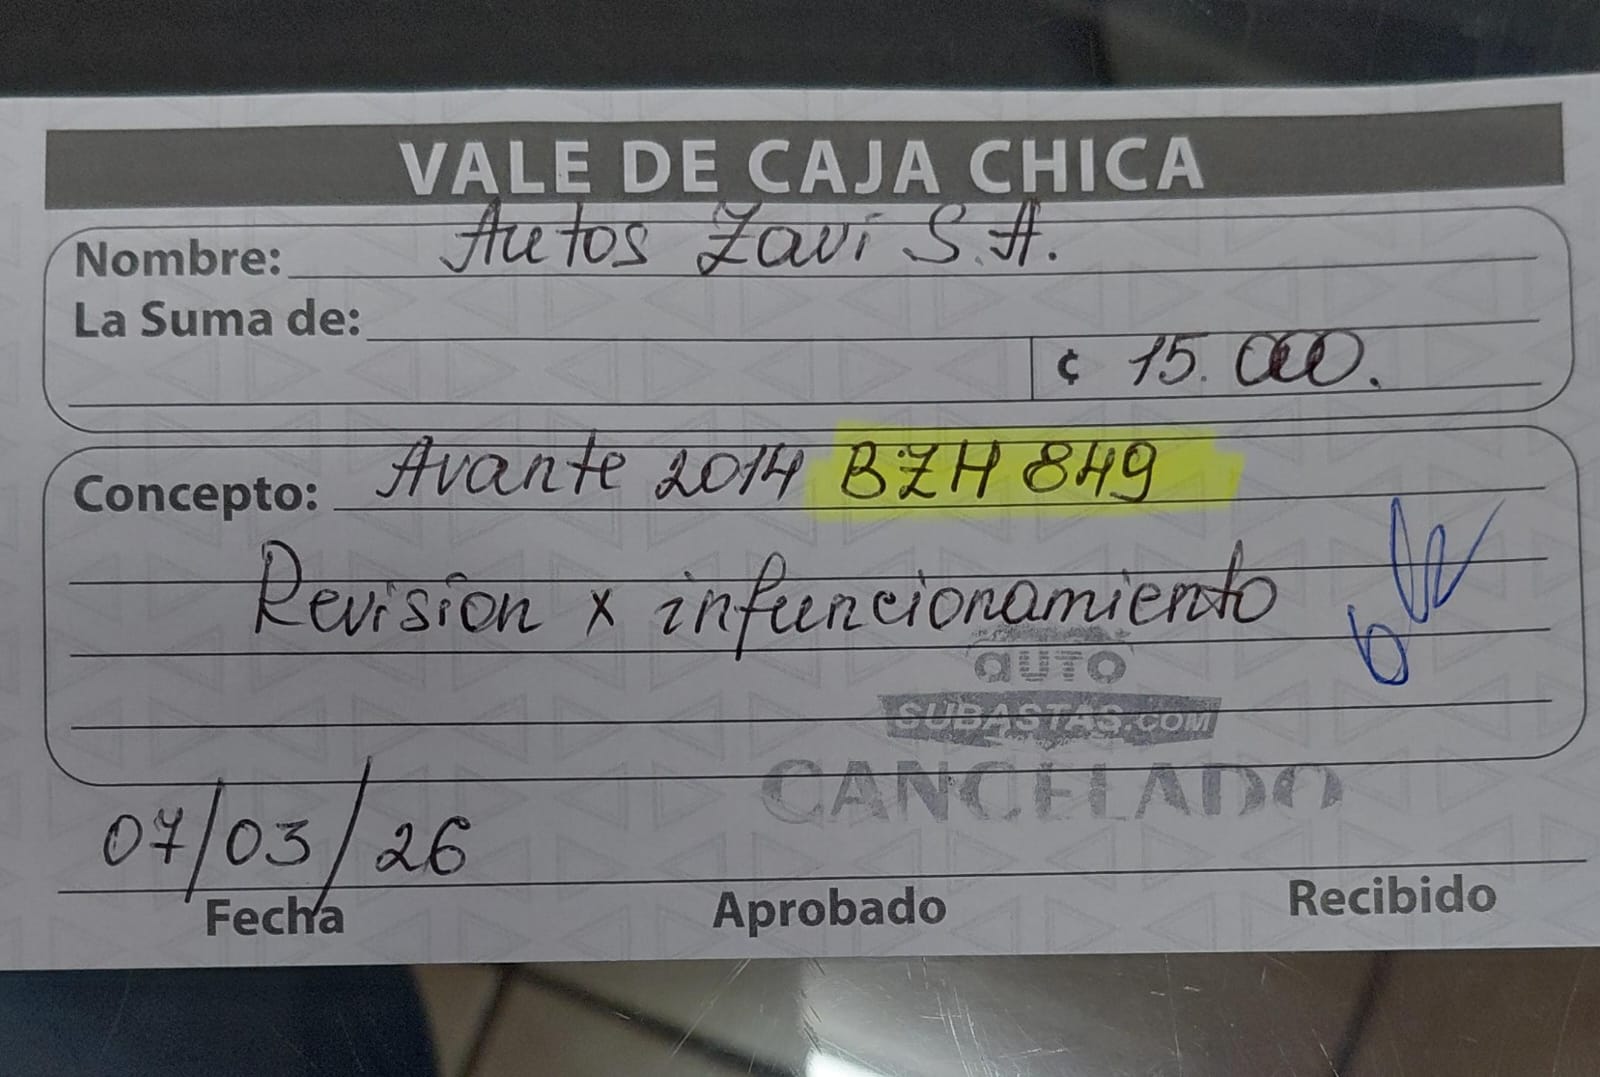 VALE DE CAJA CHICA
Nombre: Autos Zavi S.A.
La Suma de:
¢ 15.000.
Concepto: Avante 2014 BZH 849
Revisión x infuncionamiento
AUTO
SUBASTAS.COM
CANCELADO
07/03/26
Fecha Aprobado Recibido